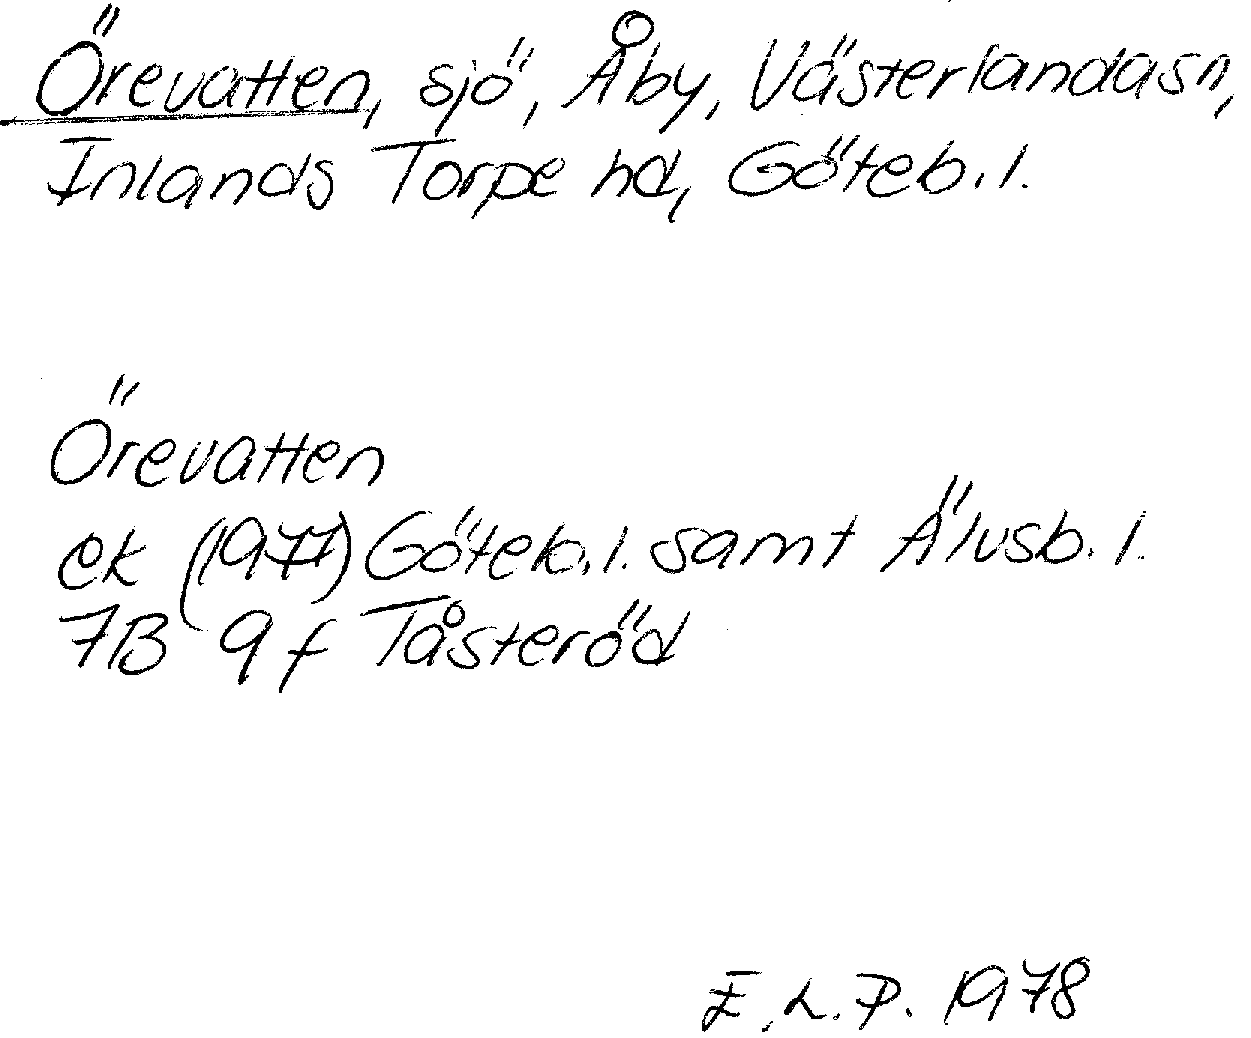 Örevatten, sjö, Åby, Västerlandasn,
Inlands Torpe hd, Göteb. l.
Örevatten
ek (1977) Göteb. l. samt Älvsb. l.
7B 9f Tåsteröd
E. L. P. 1978